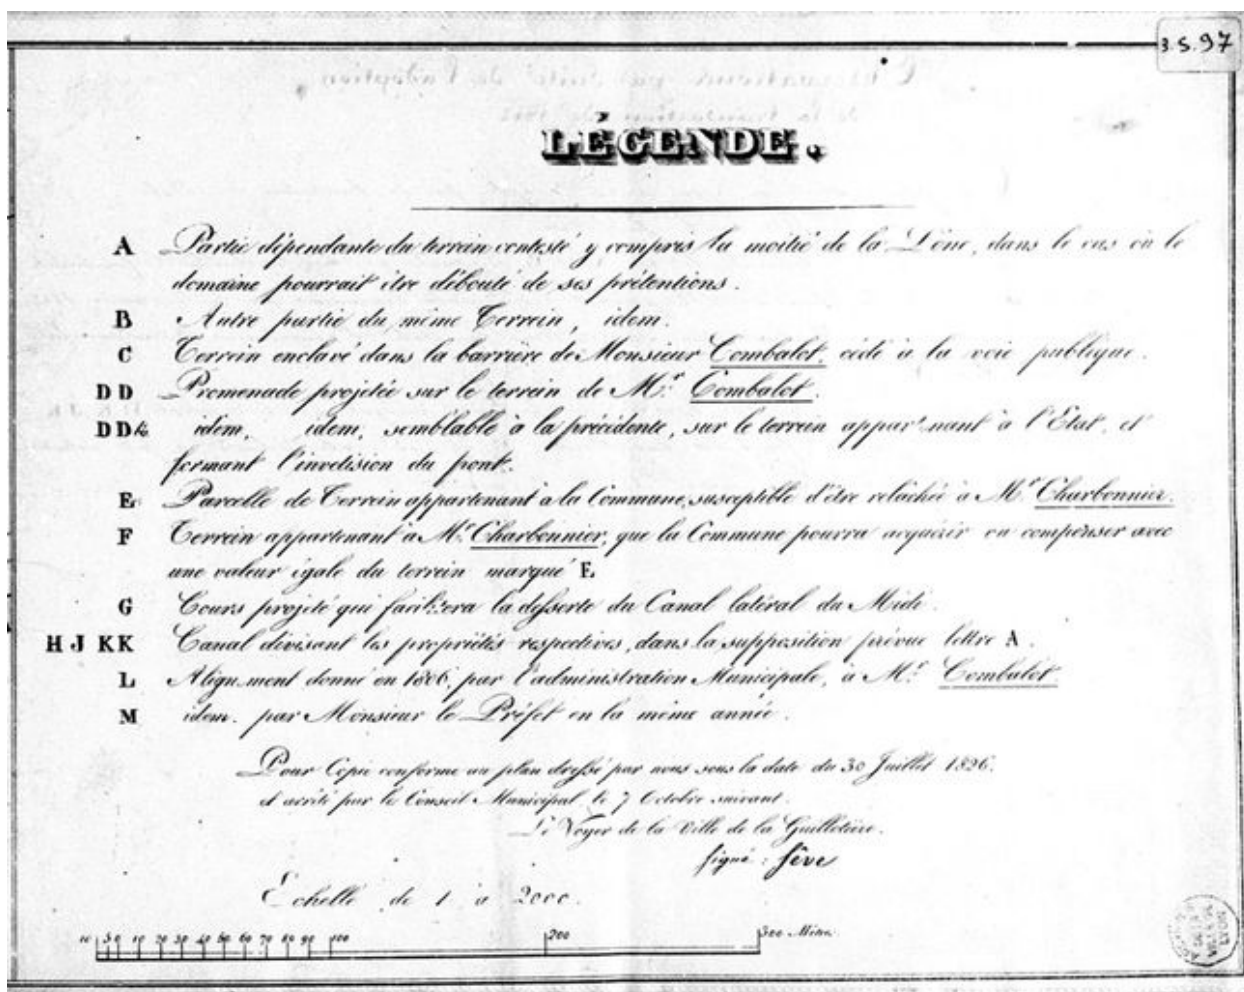 3.S.97
LÉGENDE.
A Partie dépendante du terrain contesté y compris la moitié de la Lône, dans le cas où le
domaine pourrait être débouté de ses prétentions.
B Autre partie du même Terrein, idem.
C Terrein enclavé dans la barrière de Monsieur Combalot, cédé à la voie publique.
DD Promenade projetée sur le terrein de Mr. Combalot.
DD& idem, idem, semblable à la précédente, sur le terrein appartenant à l'État, et
formant l'invetision du pont.
E Parcelle de Terrein appartenant à la Commune, susceptible d'être relâchée à Mr. Charbonnier.
F Terrein appartenant à Mr. Charbonnier, que la Commune pourra acquérir ou compenser avec
une valeur égale du terrein marqué E.
G Cours projeté qui facilitera la desserte du Canal latéral du Midi.
H J KK Canal divisant les propriétés respectives, dans la supposition prévue lettre A.
L Alignement donné en 1806, par l'administration Municipale, à Mr. Combalot
M idem. par Monsieur le Préfet en la même année.
Pour Copie conforme au plan dressé par nous sous la date du 30 Juillet 1826.
et arrêté par le Conseil Municipal, le 7 Octobre suivant.
Le Voyer de la Ville de la Guillotière.
signé : Sève
Echelle de 1 à 2000.
10 50 10 20 30 40 50 60 70 80 90 100 200 300 Mètres